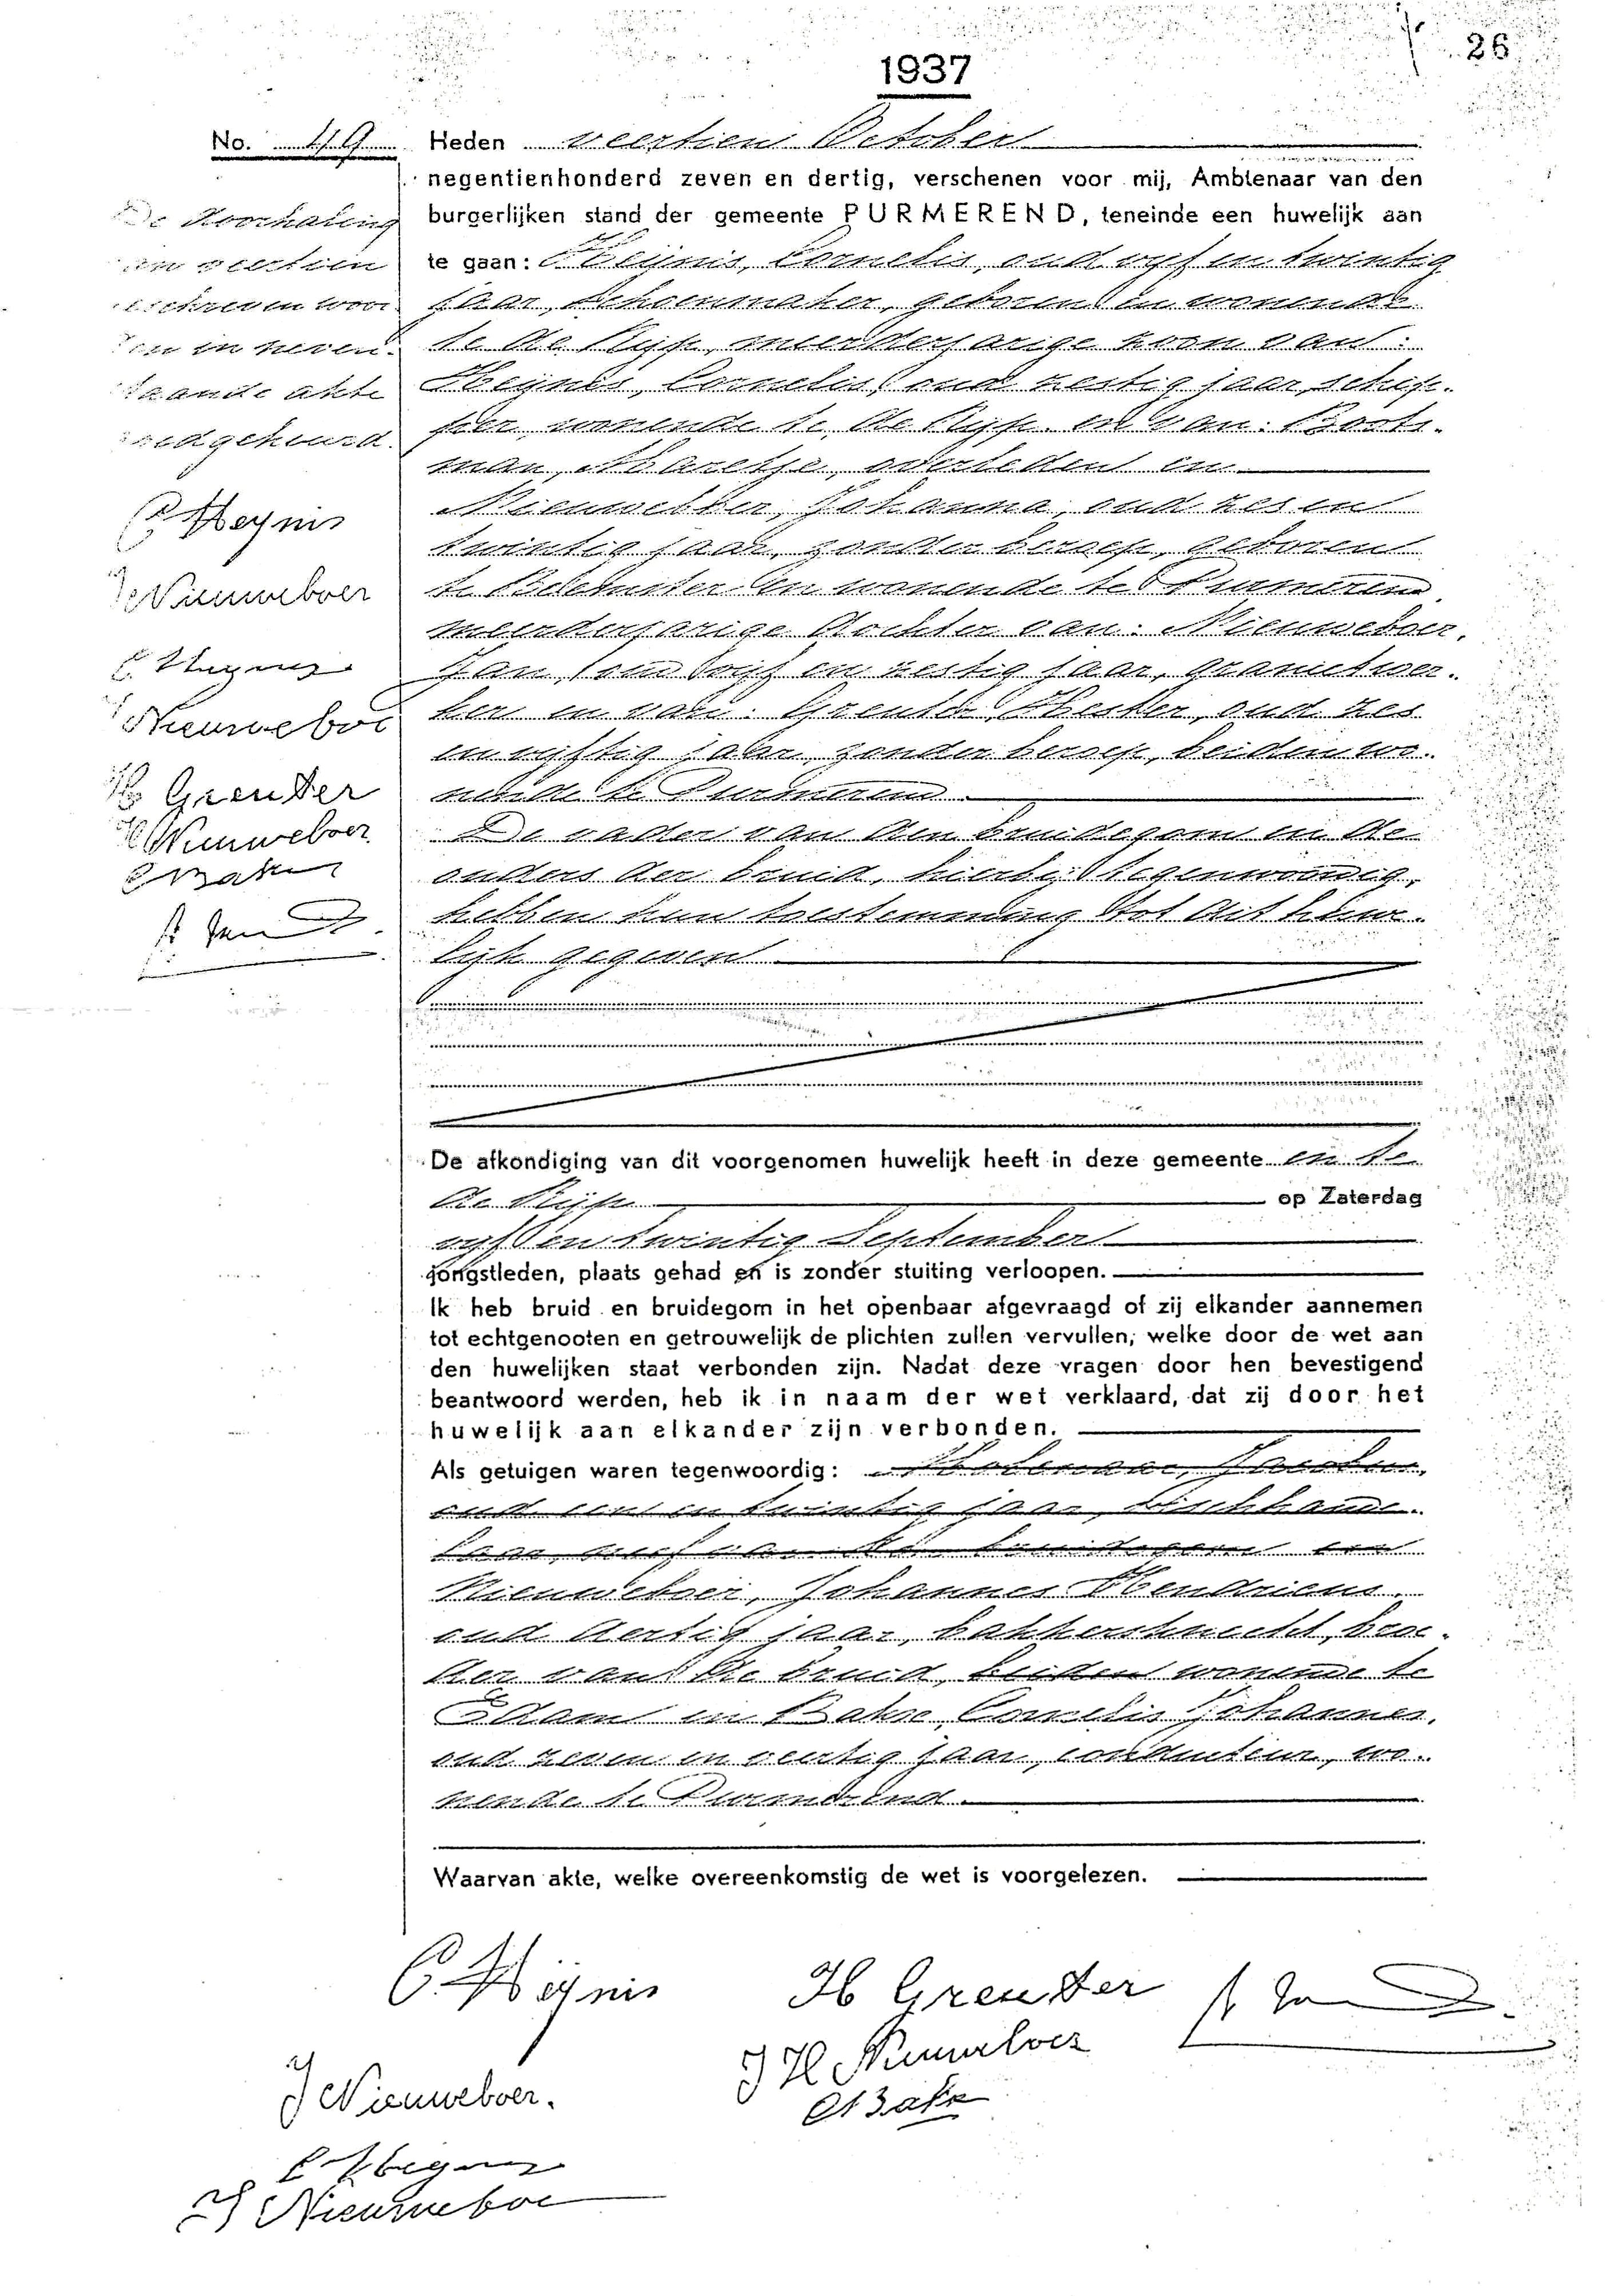 26
1937
No. 49
Heden veertien October
negentienhonderd zeven en dertig, verschenen voor mij, Ambtenaar van den
burgerlijken stand der gemeente PURMEREND, teneinde een huwelijk aan
te gaan: Heijnis, Cornelis, oud vijf en twintig
jaar, schoenmaker, geboren en wonende
te de Rijp, meerderjarige zoon van:
Heijnis, Cornelis, oud zestig jaar, schip-
per, wonende te de Rijp en van:
man, overleden en
Nieuweboer, Johanna, oud zes en
twintig jaar, zonder beroep, geboren
te Beemster en wonende te Purmerend,
meerderjarige dochter van: Nieuweboer,
Jan, oud vijf en zestig jaar,
ker en van: Greuter, oud zes
en vijftig jaar, zonder beroep, beiden wo-
nende te Purmerend.
De vader van den bruidegom en de
ouders der bruid, hierbij tegenwoordig,
hebben hun toestemming tot dit huwe-
lijk gegeven
De doorhaling
van veertien
geschreven woor-
den in neven-
staande akte
goedgekeurd.
C Heynis
J Nieuweboer
Nieuweboe
H Greuter
J H Nieuweboer
C J Bakr
De afkondiging van dit voorgenomen huwelijk heeft in deze gemeente en te
de Rijp op Zaterdag
vijf en twintig September
jongstleden, plaats gehad en is zonder stuiting verloopen.
Ik heb bruid en bruidegom in het openbaar afgevraagd of zij elkander aannemen
tot echtgenooten en getrouwelijk de plichten zullen vervullen, welke door de wet aan
den huwelijken staat verbonden zijn. Nadat deze vragen door hen bevestigend
beantwoord werden, heb ik in naam der wet verklaard, dat zij door het
huwelijk aan elkander zijn verbonden.
Als getuigen waren tegenwoordig:
oud een en twintig jaar,
Nieuweboer, Johannes Hendricus,
oud dertig jaar, bakkersknecht, broe-
der van de bruid, beiden wonende te
Edam en Bakr, Cornelis Johannes,
oud zeven en veertig jaar, conducteur, wo-
nende te Purmerend.
Waarvan akte, welke overeenkomstig de wet is voorgelezen.
C Heijnis
H Greuter
J H Nieuweboer
J Nieuweboer.
C J Bakr
J Nieuweboe